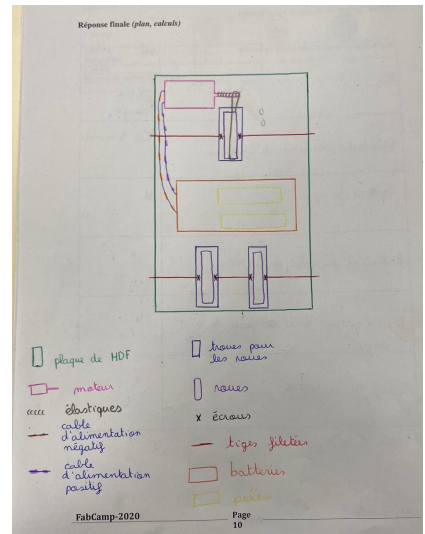 Réponse finale (plan, calculs)
plaque de MDF
moteur
élastiques
cable
d'alimentation
négatif
cable
d'alimentation
positif
troues pour
les roues
roues
x écrous
tiges filetées
batteries
piles
FabCamp-2020
Page
10